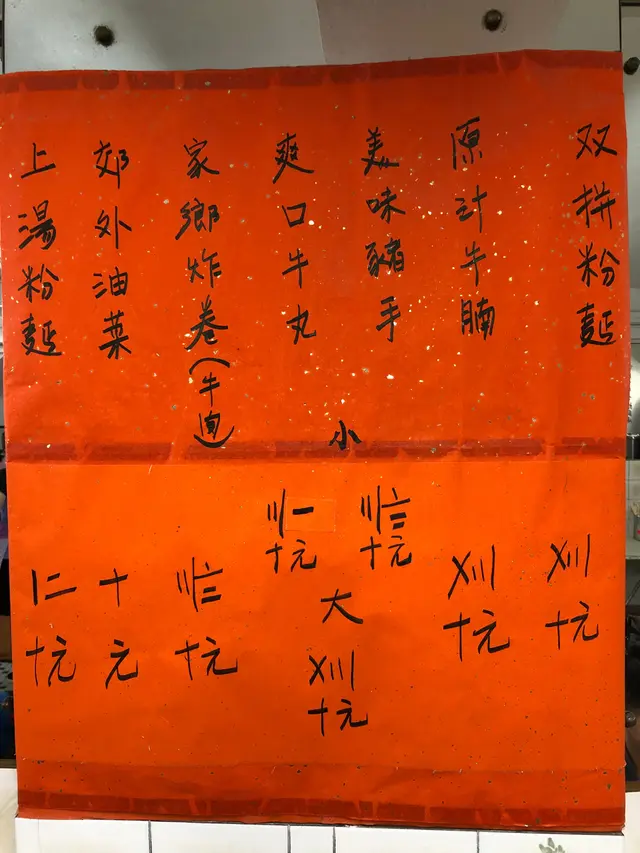 双拼粉麵
〤〣
十元
原汁牛腩
〤〣
十元
美味豬手
爽口牛丸
小
〣〨
十元
〣一
十元
大
〤〣
十元
家鄉炸卷(牛肉)
〣〨
十元
郊外油菜
十元
上湯粉麵
〡二
十元